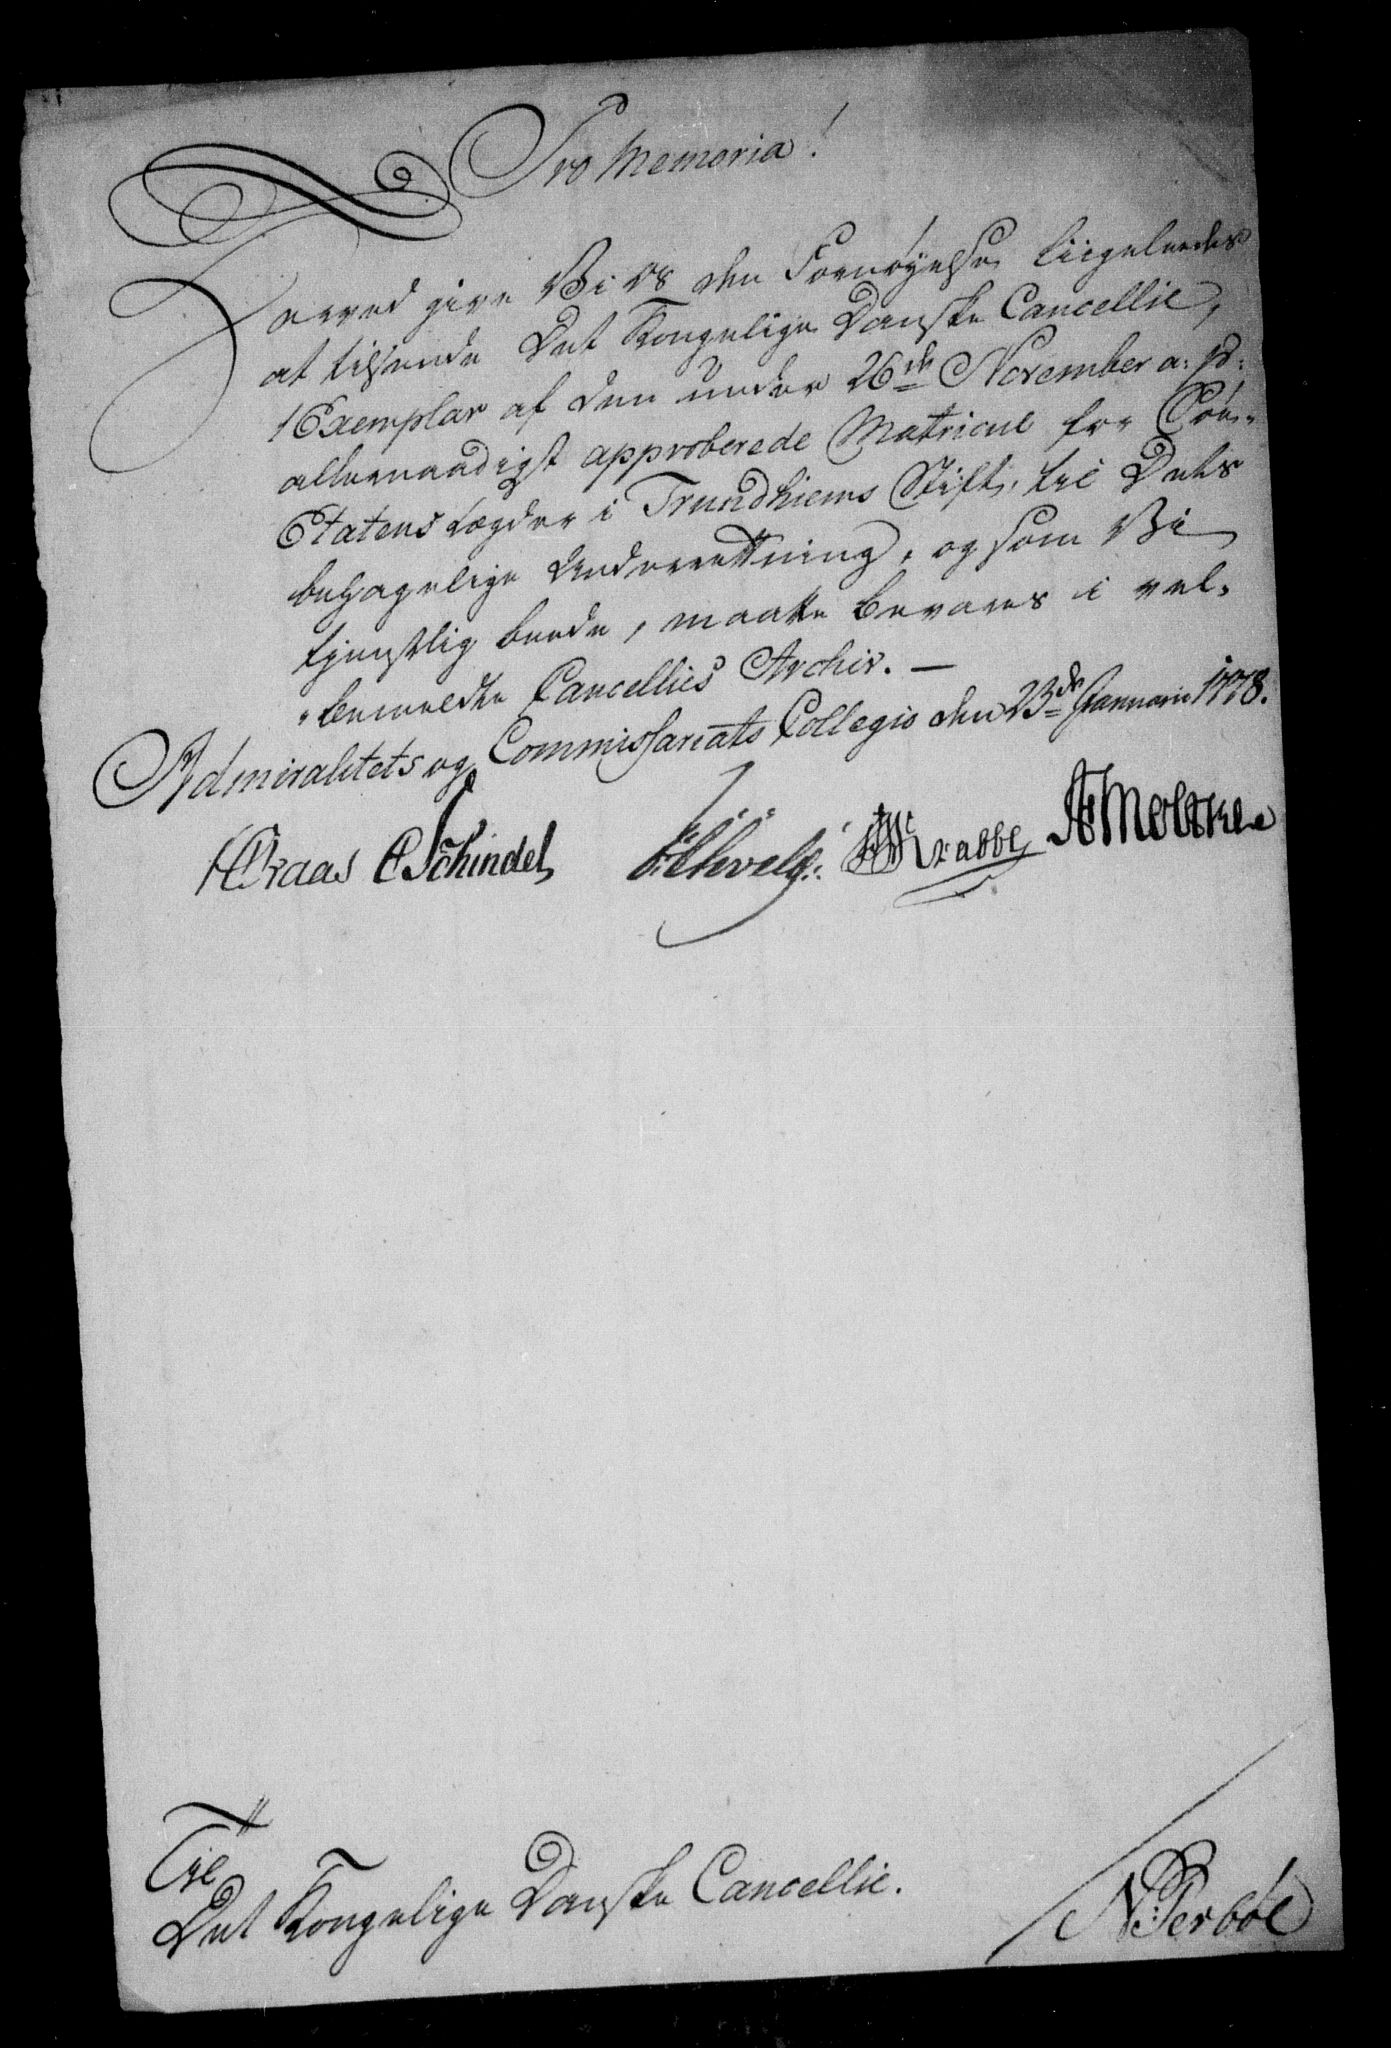 Pro Memoria!
Herved give Vi os den Fornøyelse liigeledes
at tilsende Det Kongelige Danske Cancellie,
1 Exemplar af den under 26de November a: p:
allernaadigst approberede Matricul for Söe-
Etatens Lægder i Trundhiems Stift, til Dets
behagelige Underrettning, og som Vi
tjenstlig beede, maatte bevares i vel-
bemeldte Cancellies Archiv. —
Admiralitets og Commissariats Collegio den 23de Januarii 1778.
Kaas Schindel Krabbe Moltke
Til
Det Kongelige Danske Cancellie.